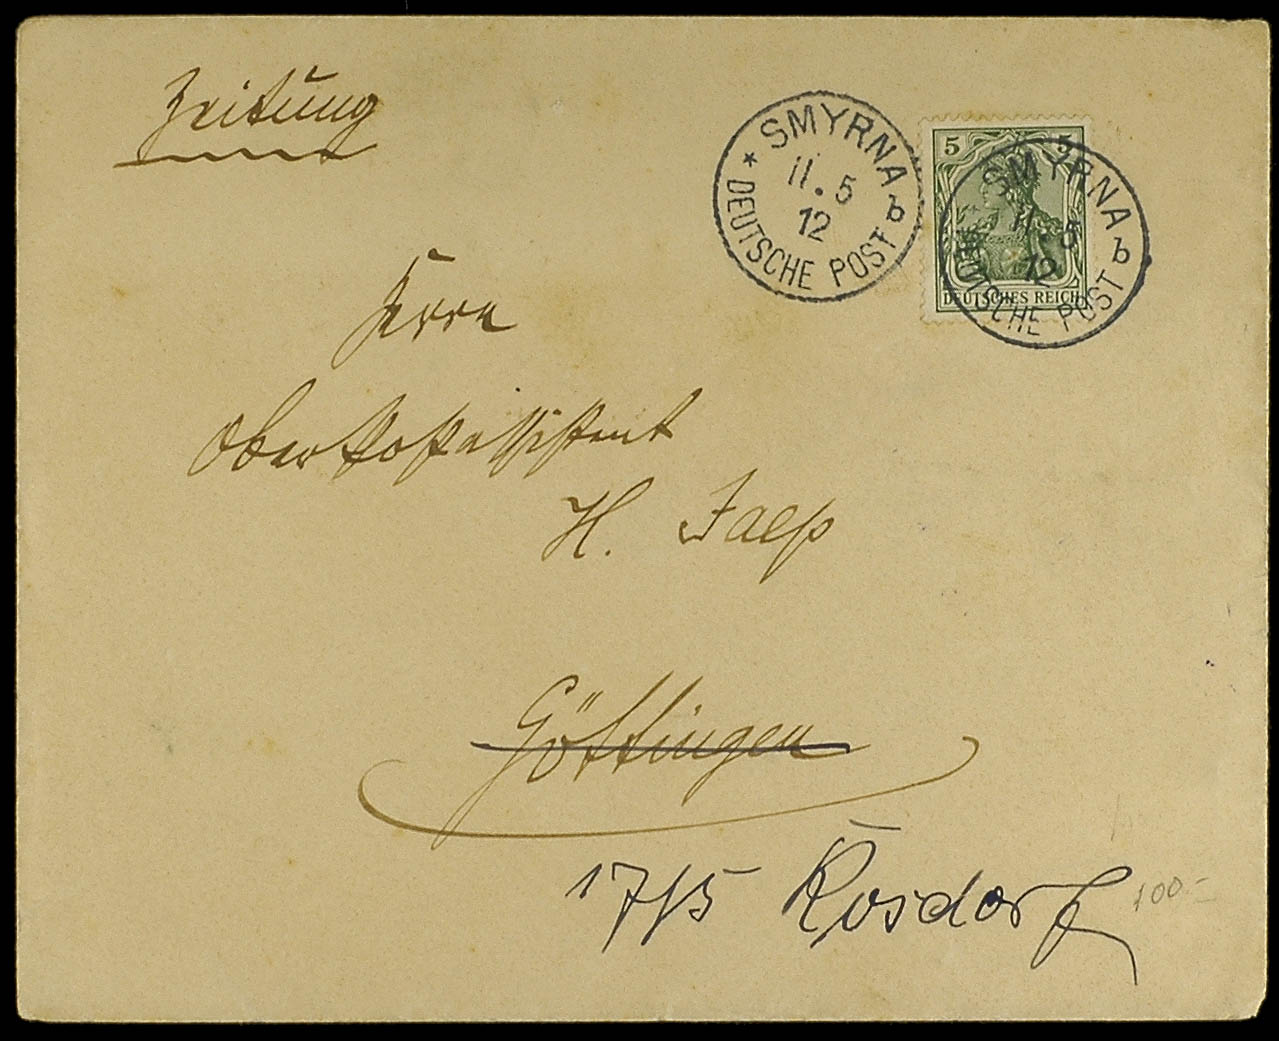 Zeitung
* SMYRNA b
11.5
12
DEUTSCHE POST
5 5
DEUTSCHES REICH
SMYRNA b
11.5
12
DEUTSCHE POST
Herrn
Oberpostassistent
H. Jaep
Göttingen
17/5 Rosdorf
100.-